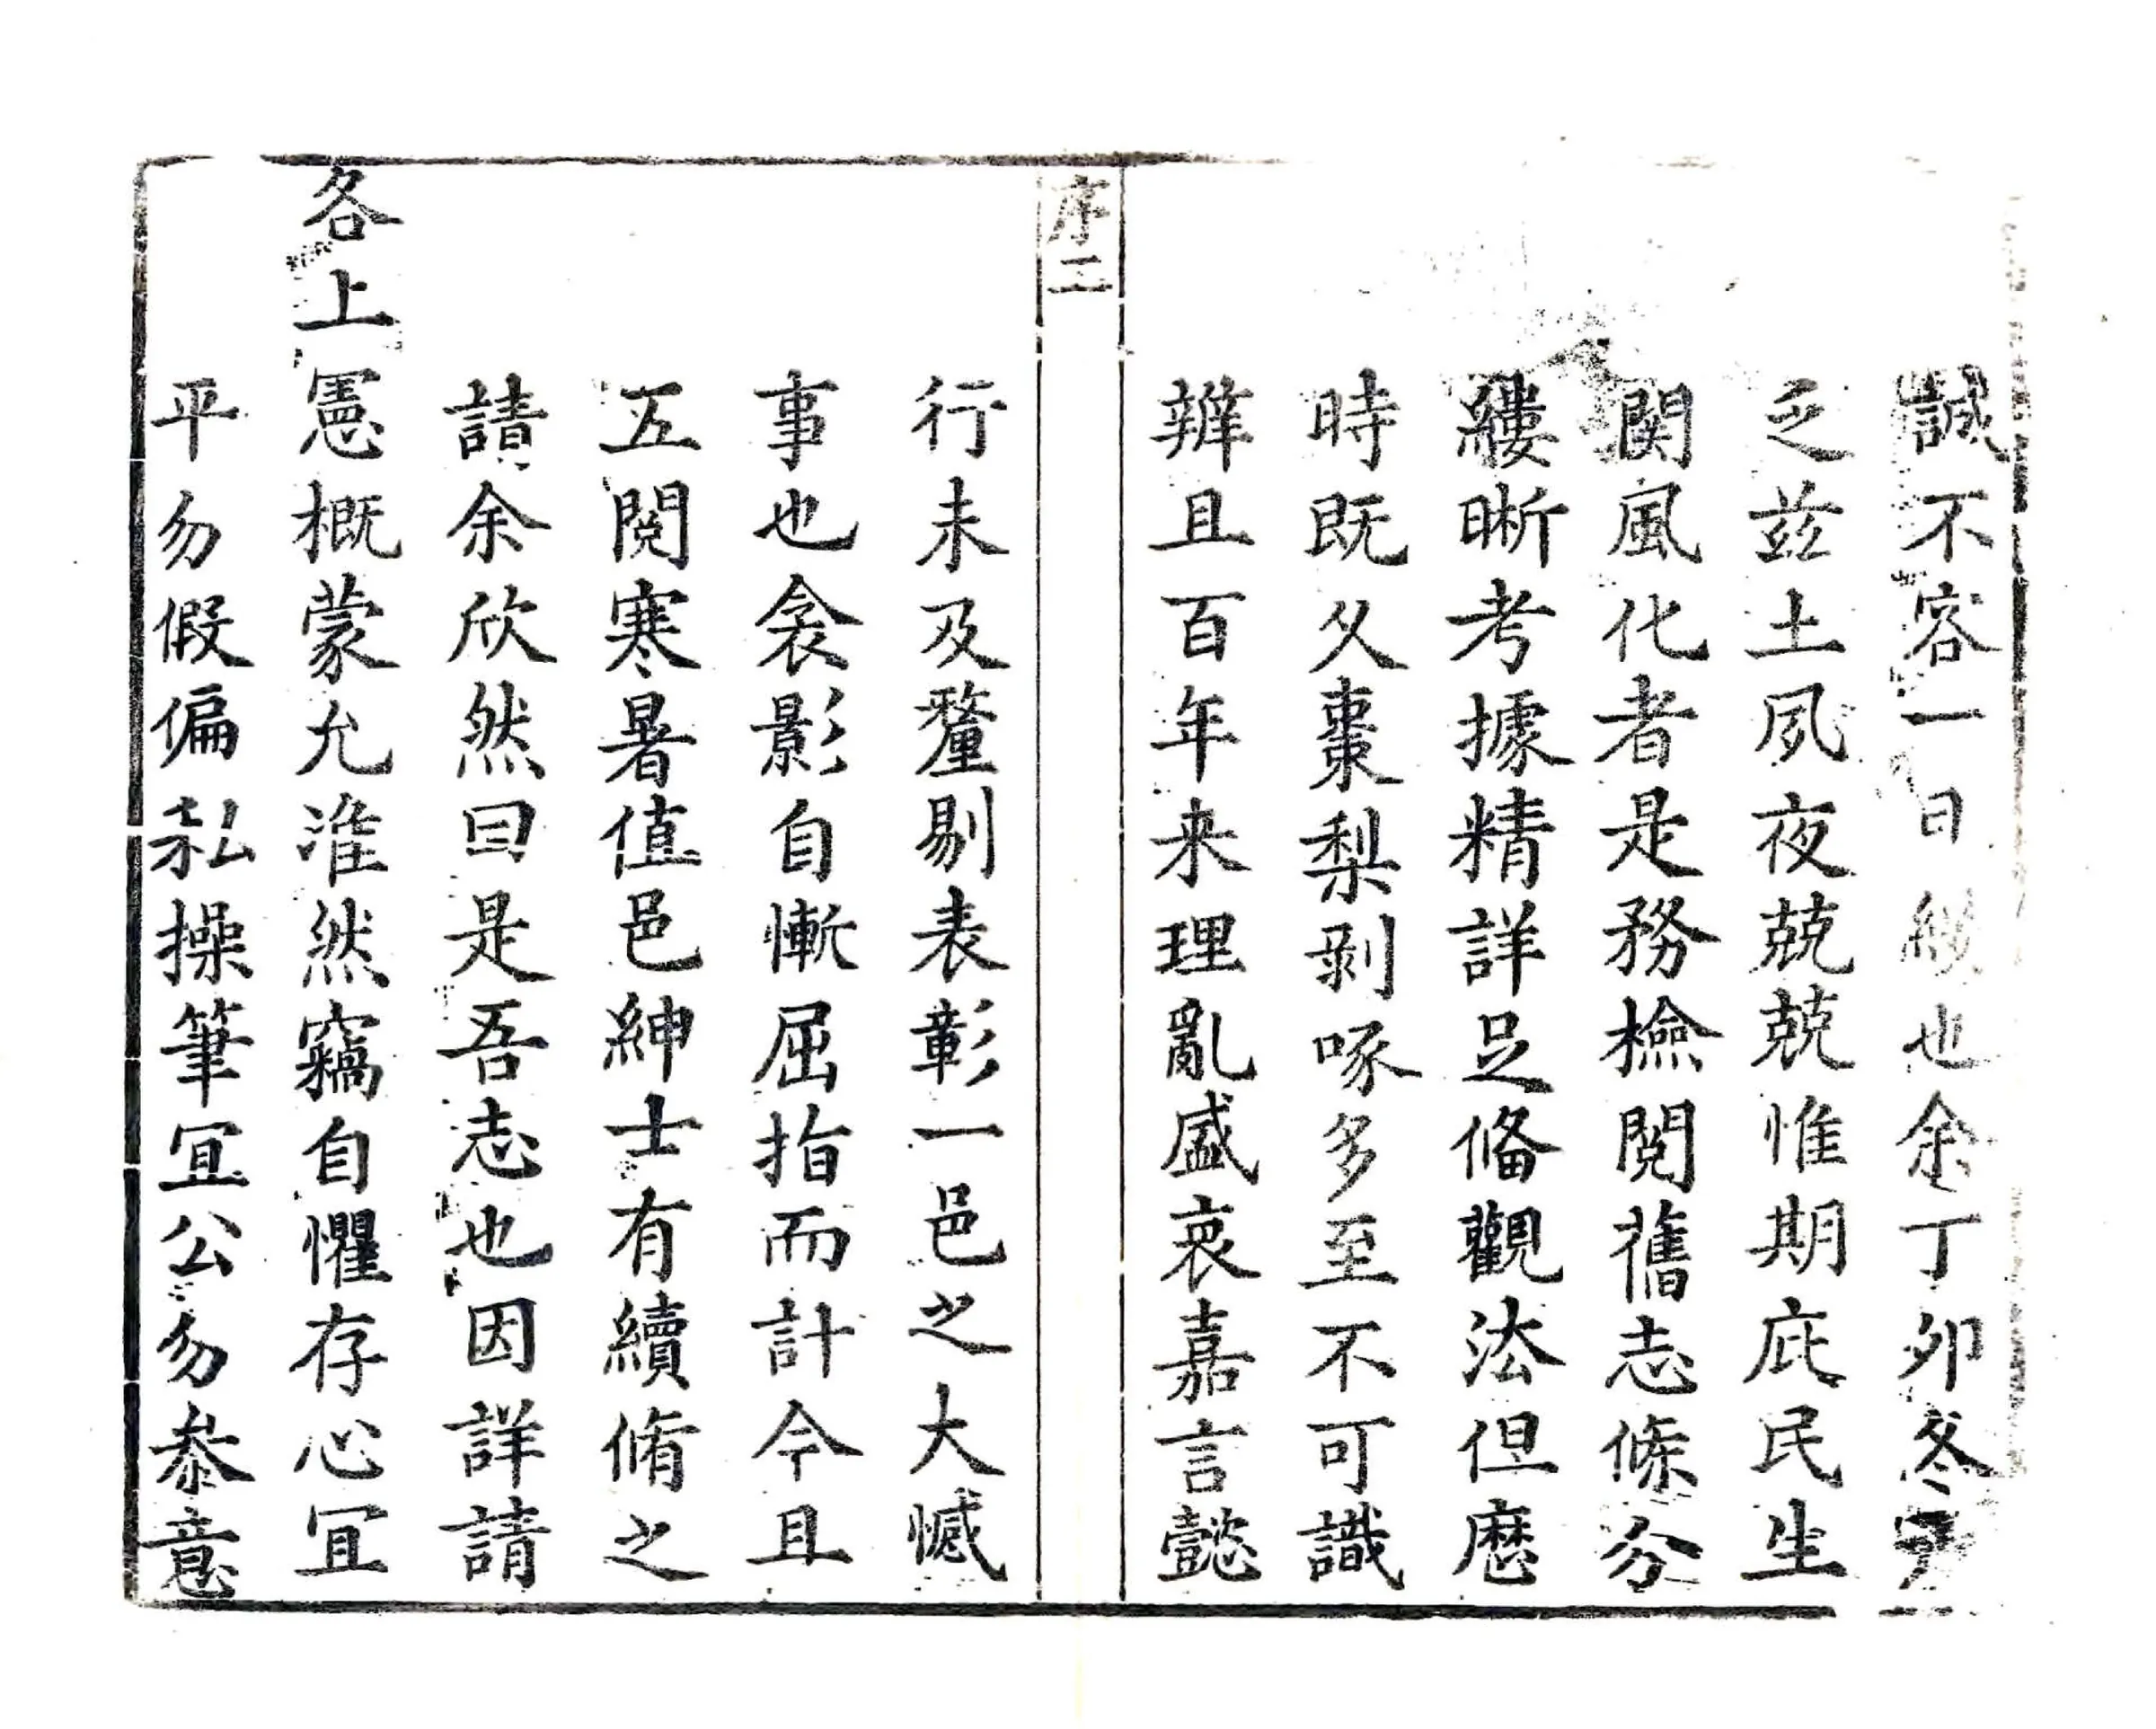 誠不容一日緩也余丁卯冬
乏茲土夙夜兢兢惟期庇民生
関風化者是務檢閱舊志條分
縷晰考據精詳足俻觀法但歴
時既久棗梨剥啄多至不可識
辨且百年来理亂盛衰嘉言懿
序二
行未及釐剔表彰一邑之大憾
事也衾影自慚屈指而計今且
五閱寒暑值邑紳士有續脩之
請余欣然曰是吾志也因詳請
各上憲概蒙允准然竊自懼存心冝
平勿假偏私操筆冝公勿叅意